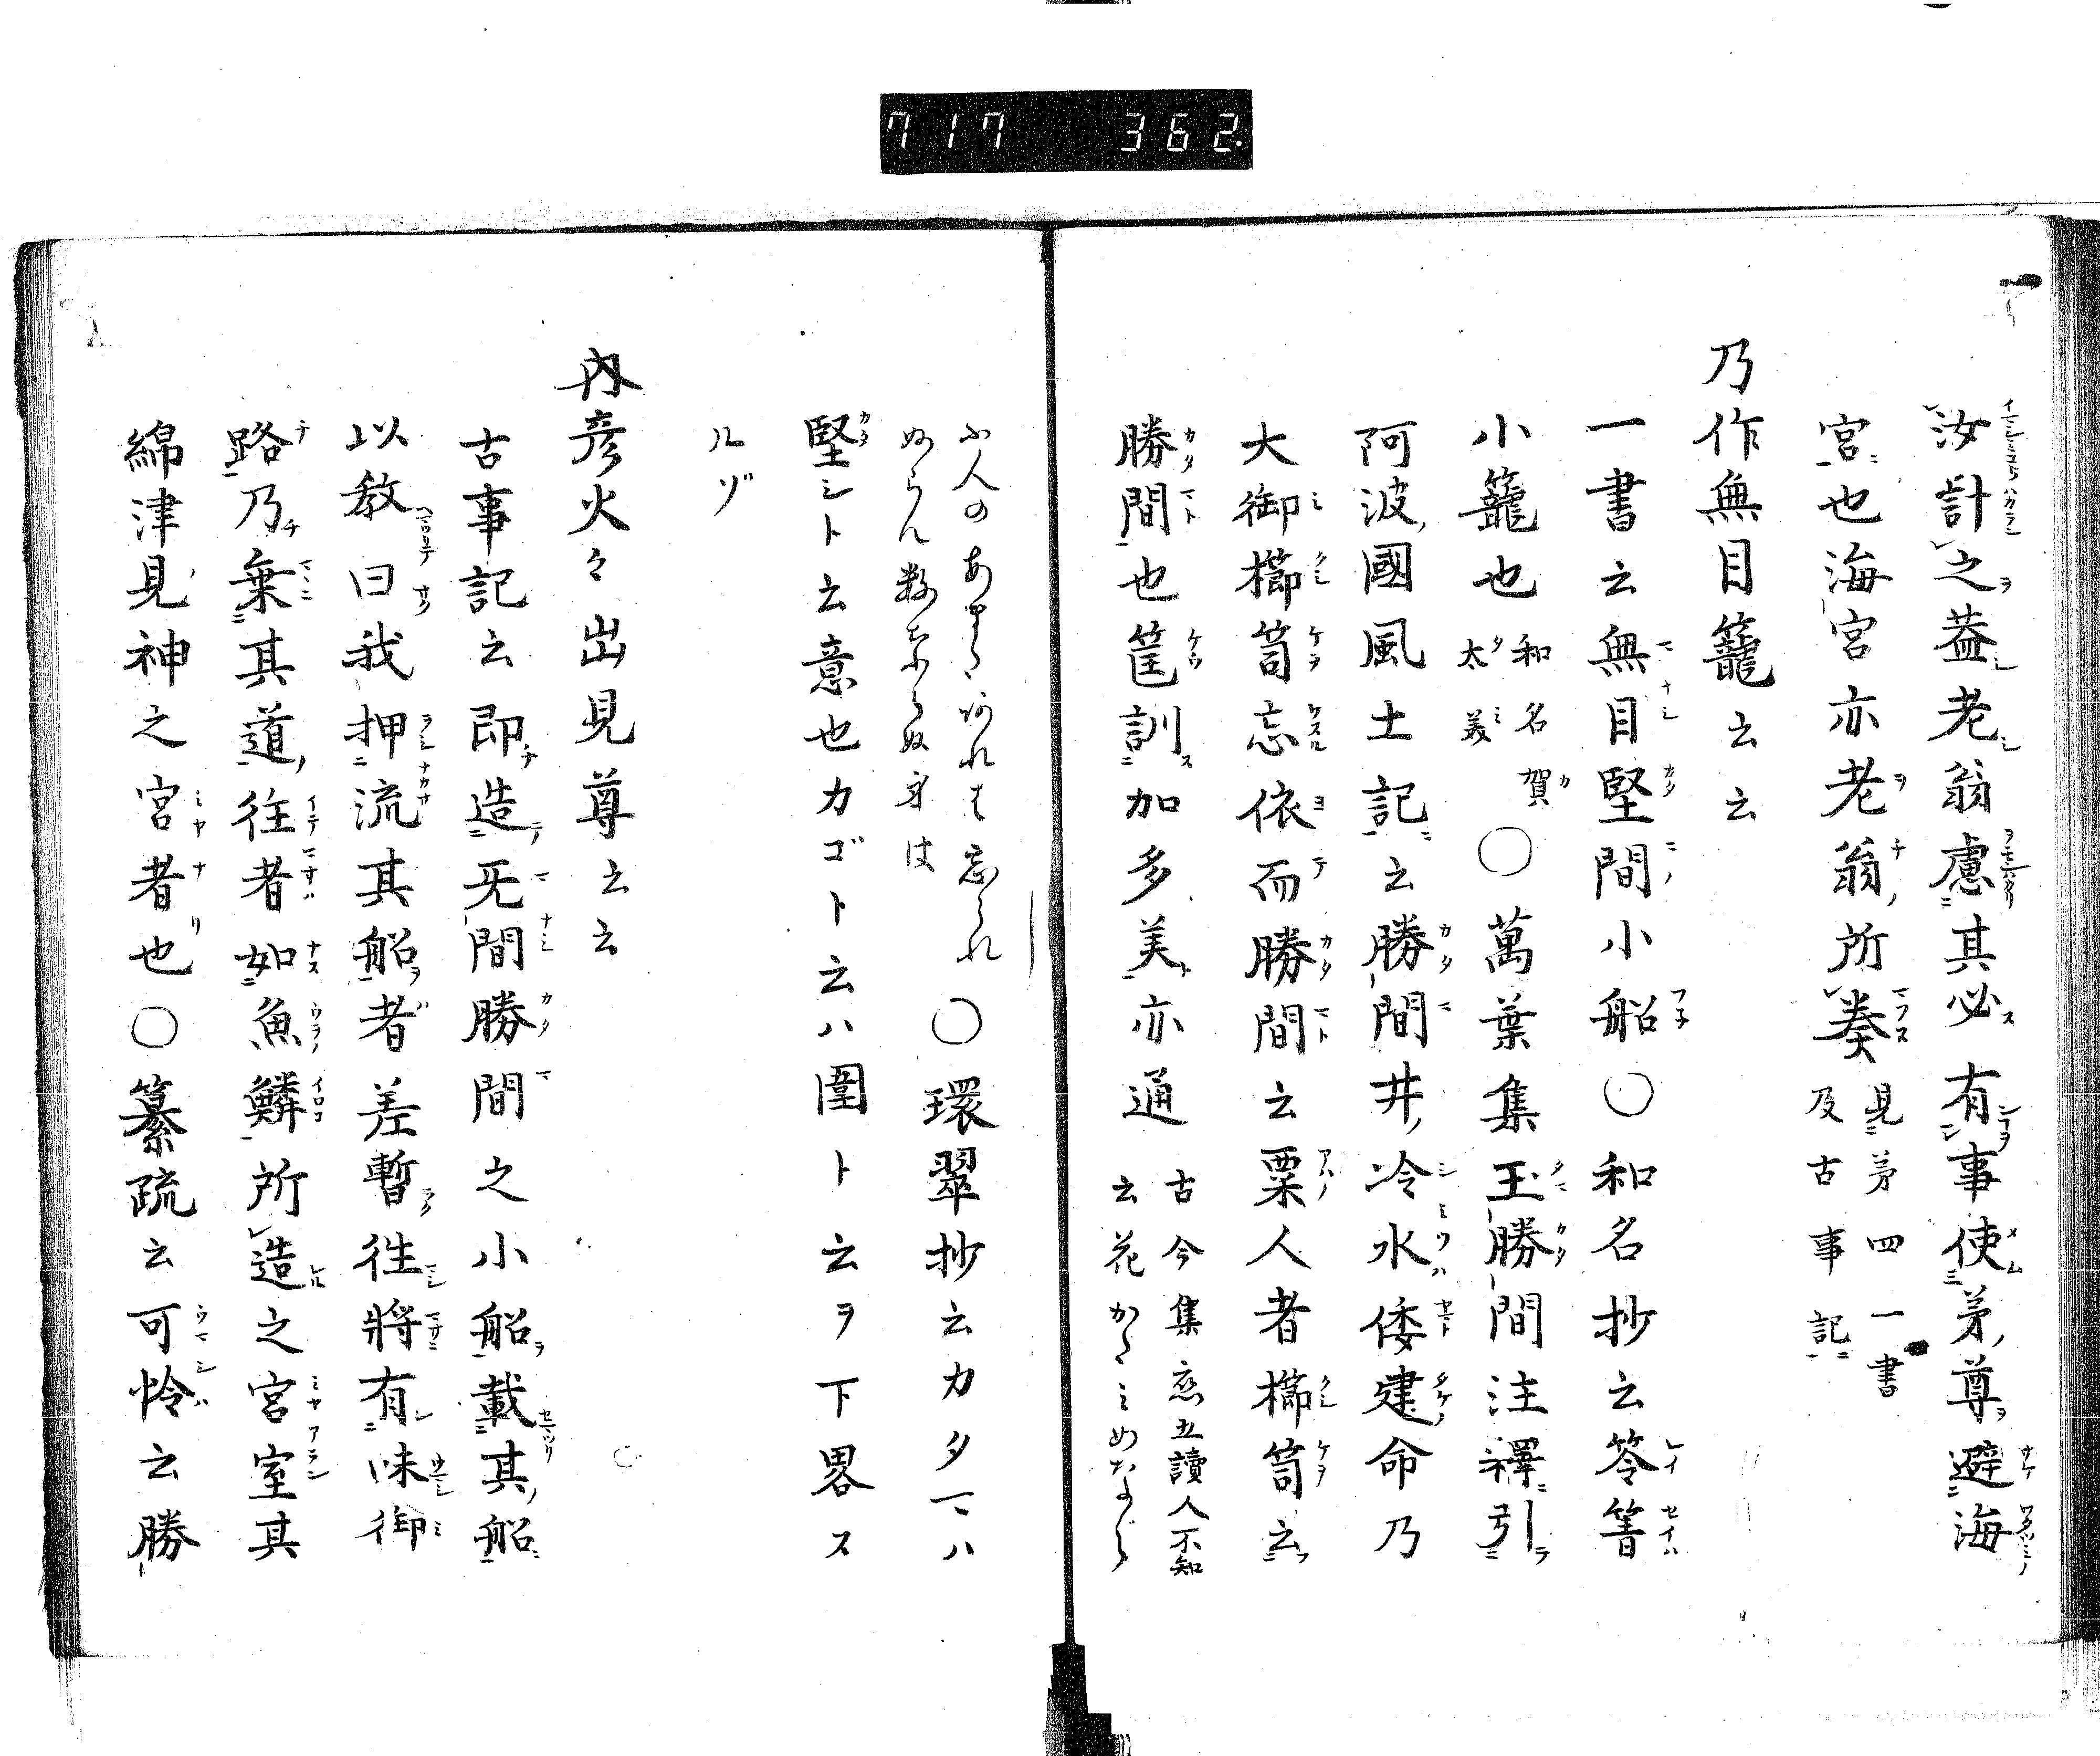 717 362.
汝計之益老翁慮其必有事使苐尊避海
宮也海宮亦老翁所奏見苐四一書
及古事記
乃作無目籠云云
一書云無目堅間小船〇和名抄云笭箐
小籠也和名賀
太美〇萬葉集玉勝間注釋引
阿波國風土記云勝間井冷水倭建命乃
大御櫛笥忘依而勝間云粟人者櫛笥云
勝間也筐訓加多美亦通古今集恋五讀人不知
云花かたみめならふ
人のあまたあれは忘られ
ぬらん数ならぬ身は〇環翠抄云カタマハ
堅シト云意也カゴト云ハ圍ト云ヲ下畧ス
ルゾ
内彦火々出見尊云云
古事記云即造无間勝間之小船載其船
以教曰我押流其船者差暫往將有味御
路乃棄其道往者如魚鱗所造之宮室其
綿津見神之宮者也〇纂疏云可怜云勝